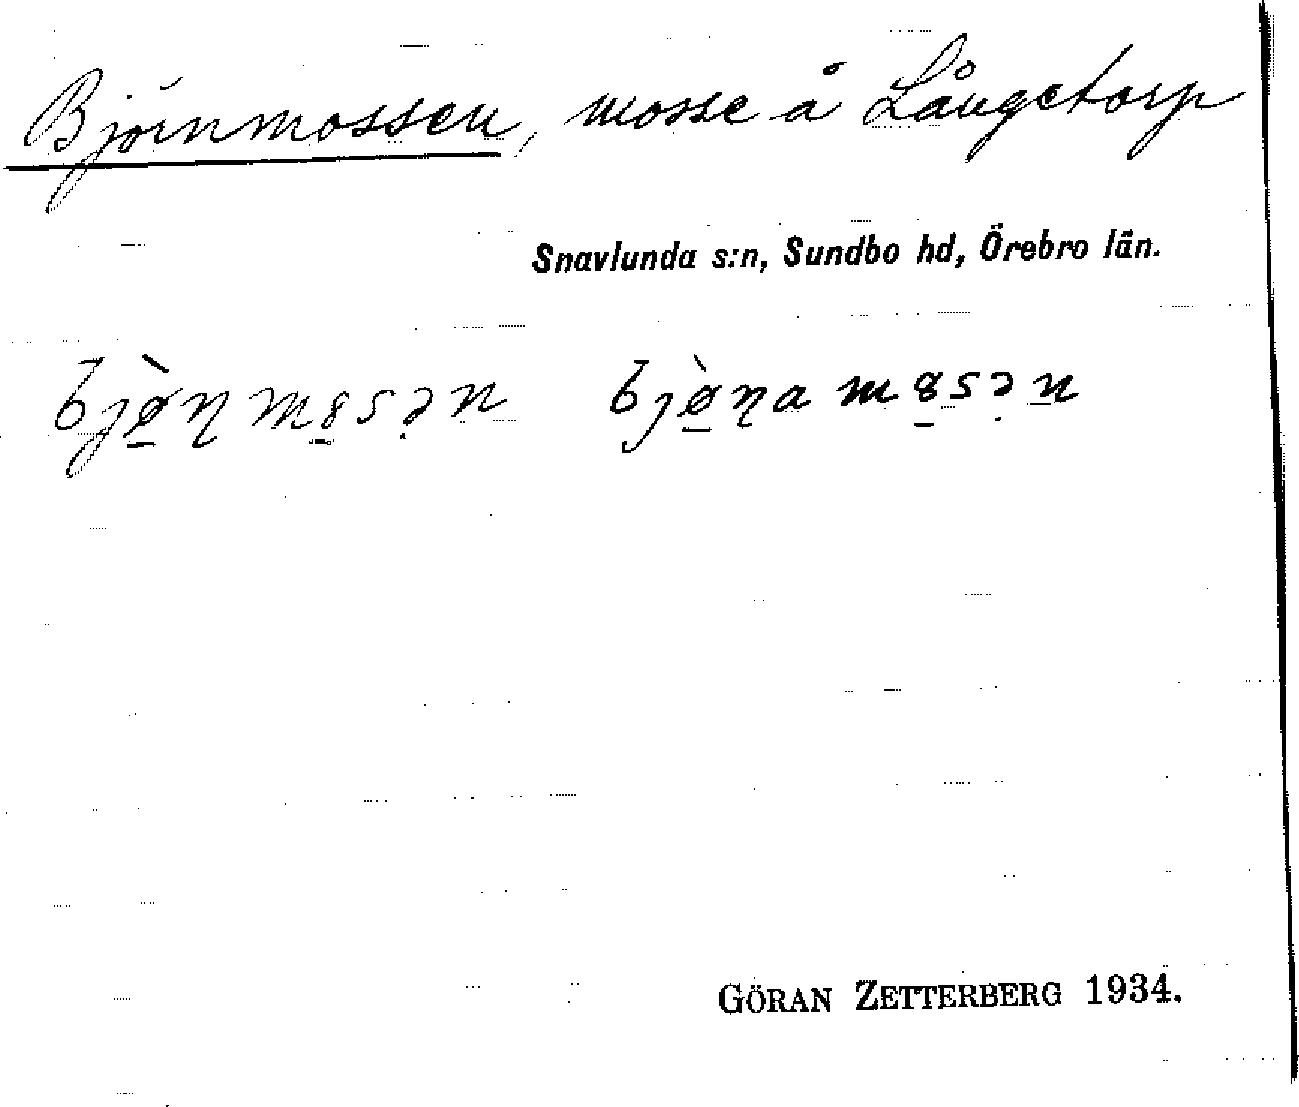 Björnmossen, mosse å Långetorp
Snavlunda s:n, Sundbo hd, Örebro län.
bjø̠̀ɳm8̠sə̣n bjø̠̀ɳam8̠sə̣n
GÖRAN ZETTERBERG 1934.